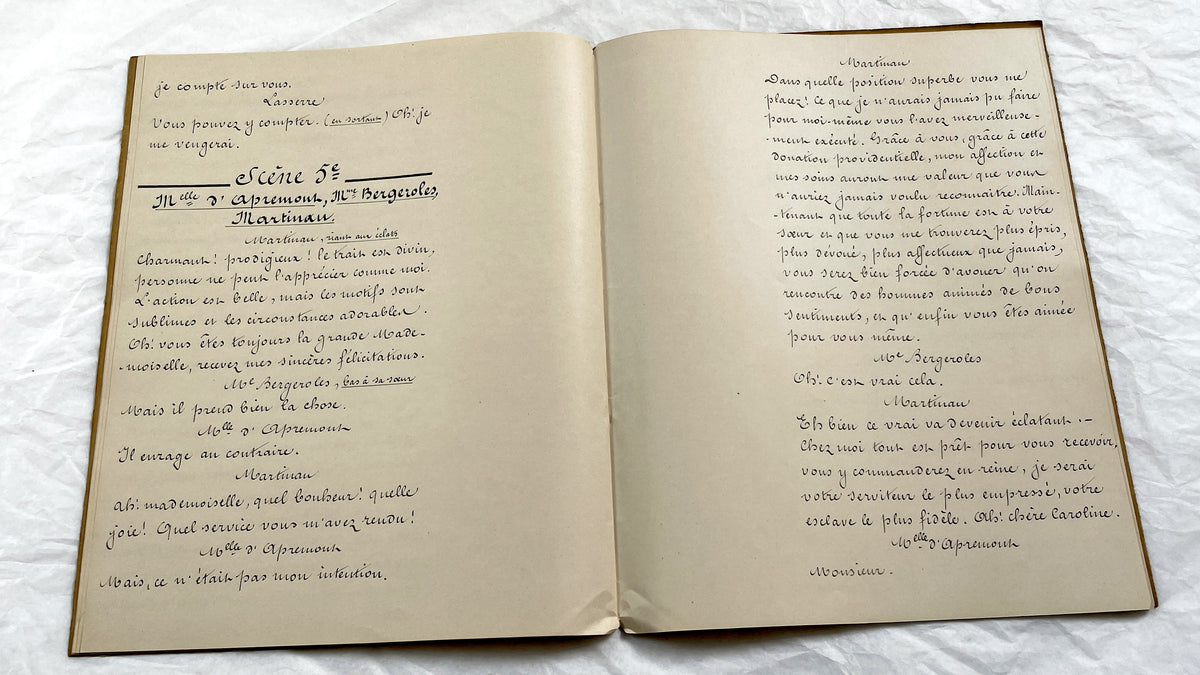 je compte sur vous.
Lasserre
Vous pouvez y compter. (en sortant) Oh! je
me vengerai.
Scène 5e
Melle d'Apremont, Mme Bergeroles,
Martinau.
Martinau, riant aux éclats
Charmant! prodigieux! le trait est divin,
personne ne peut l'apprécier comme moi.
L'action est belle, mais les motifs sont
sublimes et les circonstances adorables.
Oh! vous êtes toujours la grande Made-
-moiselle, recevez mes sincères félicitations.
Me Bergeroles, bas à sa sœur
Mais il prend bien la chose.
Mlle d'Apremont
Il enrage au contraire.
Martinau
Ah! mademoiselle, quel bonheur! quelle
joie! Quel service vous m'avez rendu!
Melle d'Apremont
Mais, ce n'était pas mon intention.
Martinau
Dans quelle position superbe vous me
placez! Ce que je n'aurais jamais pu faire
pour moi-même vous l'avez merveilleuse-
-ment exécuté. Grâce à vous, grâce à cette
donation providentielle, mon affection et
mes soins auront une valeur que vous
n'auriez jamais voulu reconnaître. Main-
-tenant que toute la fortune est à votre
sœur et que vous me trouverez plus épris,
plus dévoué, plus affectueux que jamais,
vous serez bien forcée d'avouer qu'on
rencontre des hommes animés de bons
sentiments, et qu'enfin vous êtes aimée
pour vous même.
Me Bergeroles
Oh! c'est vrai cela.
Martinau
Eh bien ce vrai va devenir éclatant. -
Chez moi tout est prêt pour vous recevoir,
vous y commanderez en reine, je serai
votre serviteur le plus empressé, votre
esclave le plus fidèle. Ah! chère Caroline.
Melle d'Apremont
Monsieur.